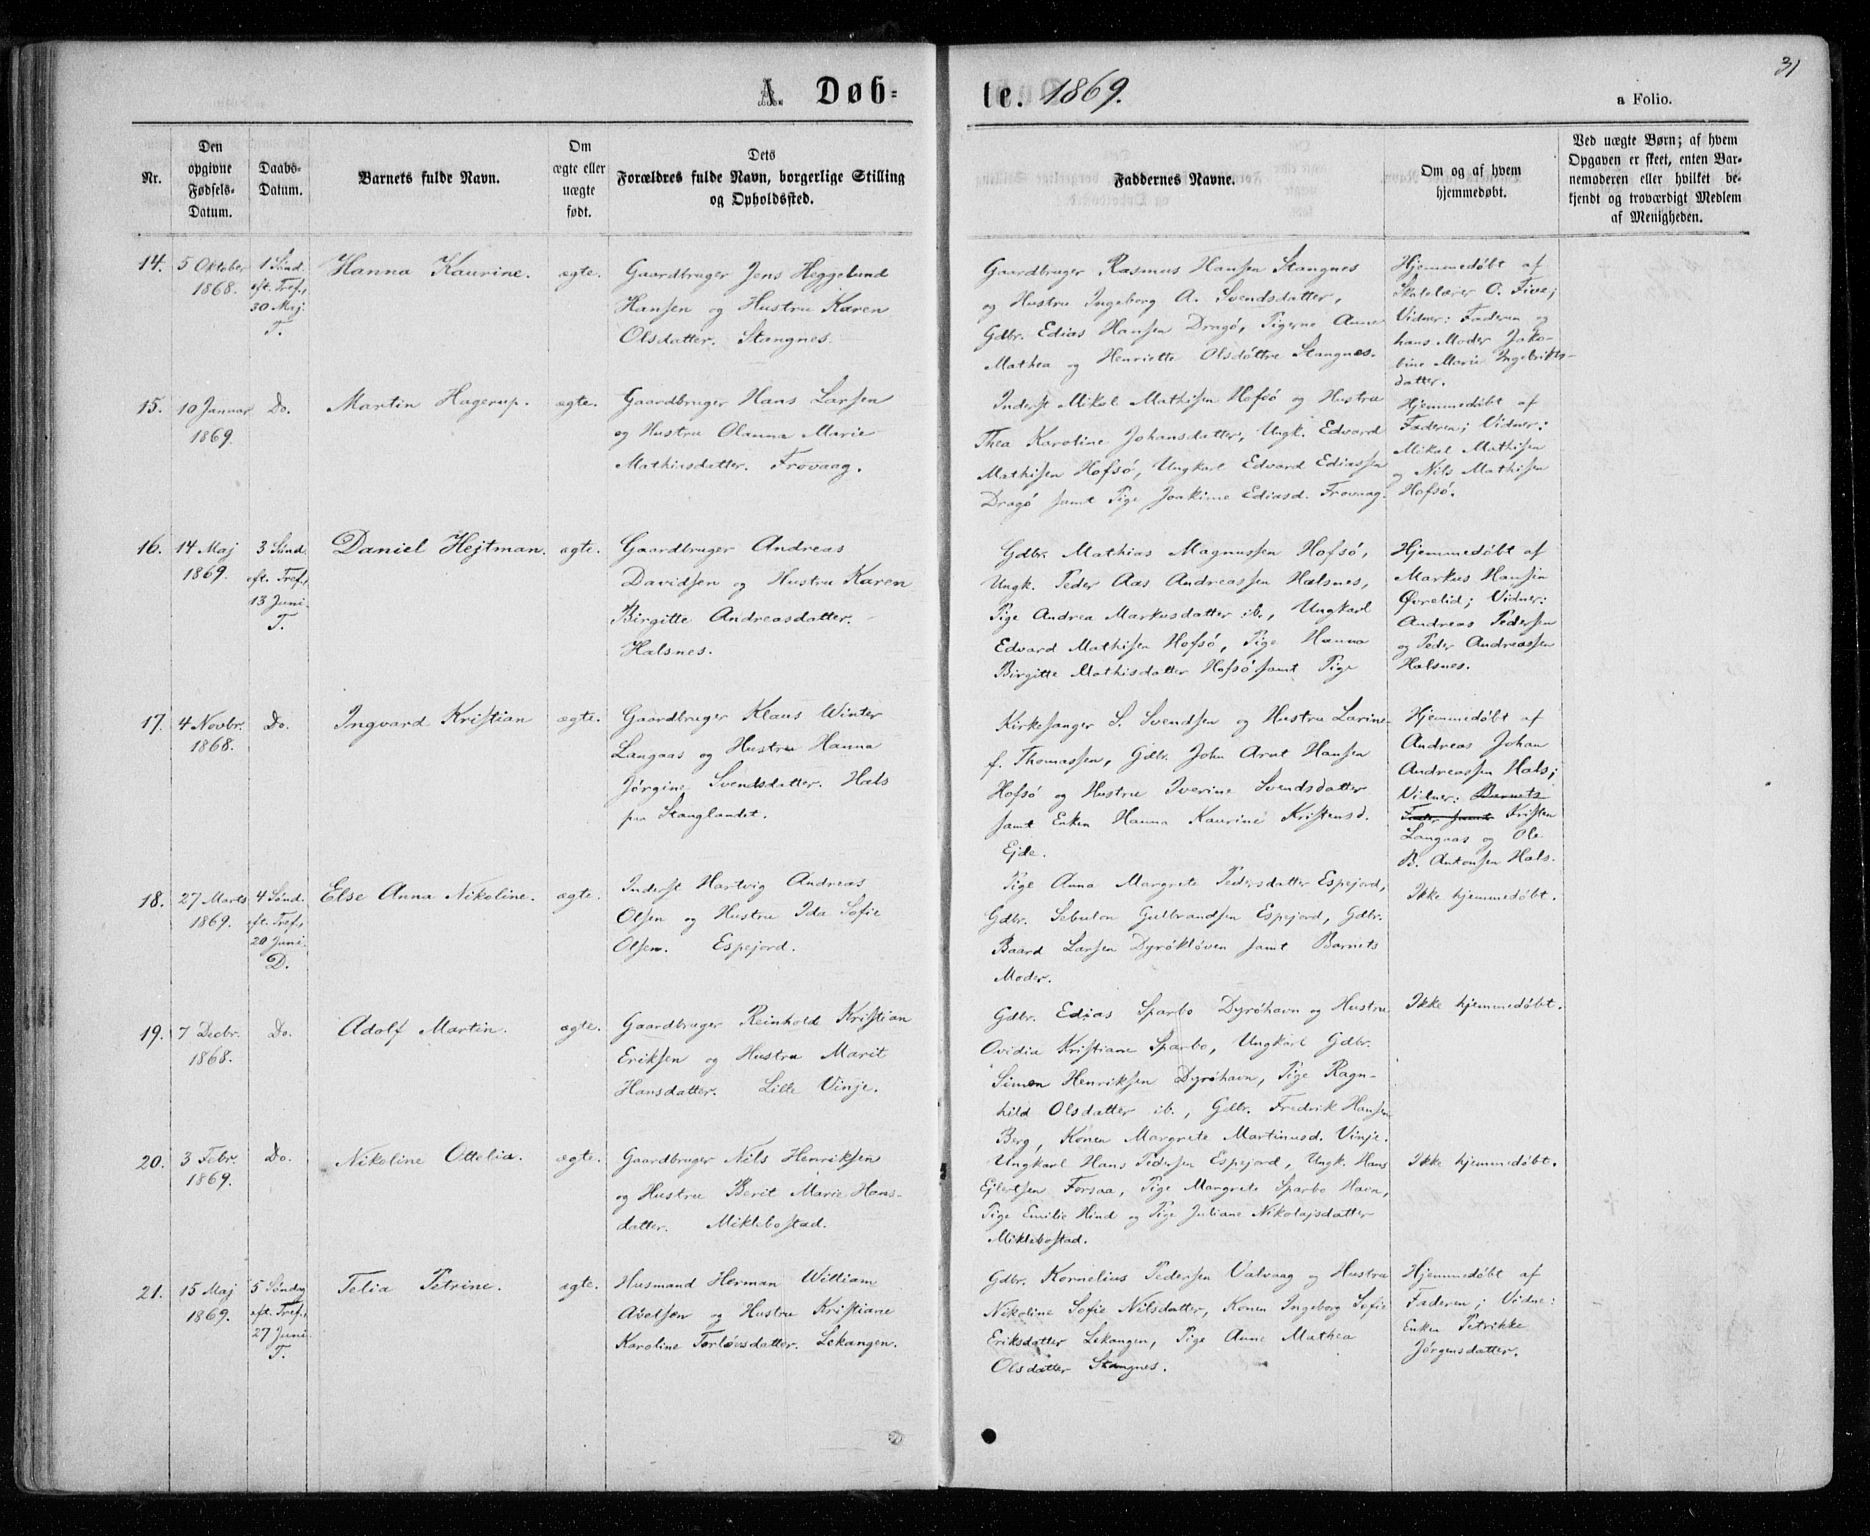 31
A. Døb-
te. 1869.
a Folio.
Nr.
Den
opgivne
Fødsels-
Datum.
Daabs-
Datum.
Barnets fulde Navn.
Om
ægte eller
uægte
født.
Dets
Forældres fulde Navn, borgerlige Stilling
og Opholdssted.
Faddernes Navne.
Om og af hvem
hjemmedøbt.
Ved uægte Børn; af hvem
Opgaven er skeet, enten Bar-
nemoderen eller hvilket be-
kjendt og troværdigt Medlem
af Menigheden.
14.
5 Oktober
1868.
1 Sønd.
eft. Tref.,
30 Maj.
T.
Hanna Kaurine.
ægte.
Gaardbruger Jens Heggelund
Hansen og Hustru Karen
Olsdatter. Stangnes.
Gaardbruger Rasmus Hansen Stangnes
og Hustru Ingeborg A. Svendsdatter,
Gdbr. Edias Hansen Dragø, Pigerne Anne
Mathea og Henriette Olsdøttre Stangnes.
Hjemmedøbt af
Skolelærer O. Five;
Vidner: Faderen og
hans Moder Jako-
bine Marie Ingebrikts-
datter.
15.
10 Januar
1869.
Do.
Martin Hagerup.
ægte.
Gaardbruger Hans Larsen
og Hustru Olanna Marie
Mathiasdatter. Frovaag.
Inderst Mikal Mathisen Hofsø og Hustru
Thea Karoline Johansdatter, Ungk. Edvard
Mathisen Hofsø, Ungkarl Edvard Ediassen
Dragø samt Pige Joakime Ediasd. Frovaag.
Hjemmedøbt af
Faderen; Vidner:
Mikal Mathisen
og Nils Mathisen
Hofsø.
16.
14 Maj
1869.
3 Sønd.
eft. Tref.,
13 Juni.
T.
Daniel Hejtman.
ægte.
Gaardbruger Andreas
Davidsen og Hustru Karen
Birgitte Andreasdatter.
Halsnes.
Gdbr. Mathias Magnussen Hofsø,
Ungk. Peder Aas Andreassen Halsnes,
Pige Andrea Markusdatter ib., Ungkarl
Edvard Mathisen Hofsø, Pige Hanna
Birgitte Mathisdatter Hofsø samt Pige
Hjemmedøbt af
Markus Hansen
Øvrelid; Vidner:
Andreas Pedersen
og Peder Andreassen
Halsnes.
17.
4 Novbr.
1868.
Do.
Ingvard Kristian
ægte.
Gaardbruger Klaus Winter
Langaas og Hustru Hanna
Jørgine Svendsdatter. Hals
paa Stanglandet.
Kirkesanger S. Svendsen og Hustru Larine
f. Thomassen, Gdbr. John Arnt Hansen
Hofsø og Hustru Iverine Svendsdatter
samt Enken Hanna Kaurine Kristensd.
Ejde.
Hjemmedøbt af
Andreas Johan
Andreassen Hals;
Vidner: Barnets
Fader samt Kristen
Langaas og Ole
B. Antonsen Hals.
18.
27 Marts
1869.
4 Sønd.
eft. Tref.,
20 Juni.
D.
Else Anna Nikoline.
ægte.
Inderst Hartvig Andreas
Olsen og Hustru Ida Sofie
Olsen. Espejord.
Pige Anna Margrete Pedersdatter Espejord,
Gdbr. Sebulon Gulbrandsen Espejord, Gdbr.
Baard Larsen Dyrøkløven samt Barnets
Moder.
Ikke hjemmedøbt.
19.
7 Decbr.
1868.
Do.
Adolf Martin.
ægte.
Gaardbruger Reinhold Kristian
Eriksen og Hustru Marit
Hansdatter. Lille Vinje.
Gdbr. Edias Sparbo Dyrøhavn og Hustru
Ovidia Kristiane Sparbo, Ungkarl Gdbr.
Simon Henriksen Dyrøhavn, Pige Ragn-
hild Olsdatter ib., Gdbr. Fredrik Hansen
Berg, Konen Margrete Martinusd. Vinje.
Ikke hjemmedøbt.
20.
3 Febr.
1869.
Do.
Nikoline Ottelia.
ægte.
Gaardbruger Nils Henriksen
og Hustru Berit Marie Hans-
datter. Miklebostad.
Ungkarl Hans Pedersen Espejord, Ungk. Hans
Ejlertsen Forsaa, Pige Margrete Sparbo Havn,
Pige Emilie Hind og Pige Juliane Nikolajsdatter
Miklebostad.
Ikke hjemmedøbt.
21.
15 Maj
1869.
5 Søndag
eft. Tref.,
27 Juni
T.
Telia Petrine.
ægte.
Husmand Herman William
Abelsen og Hustru Kristiane
Karoline Torlovsdatter. Lekangen.
Gdbr. Kornelius Pedersen Valvaag og Hustru
Nikoline Sofie Nilsdatter, Konen Ingeborg Sofie
Eriksdatter Lekangen, Pige Anne Mathea
Olsdatter Stangnes.
Hjemmedøbt af
Faderen; Vidne:
Enken Petrikke
Jørgensdatter.